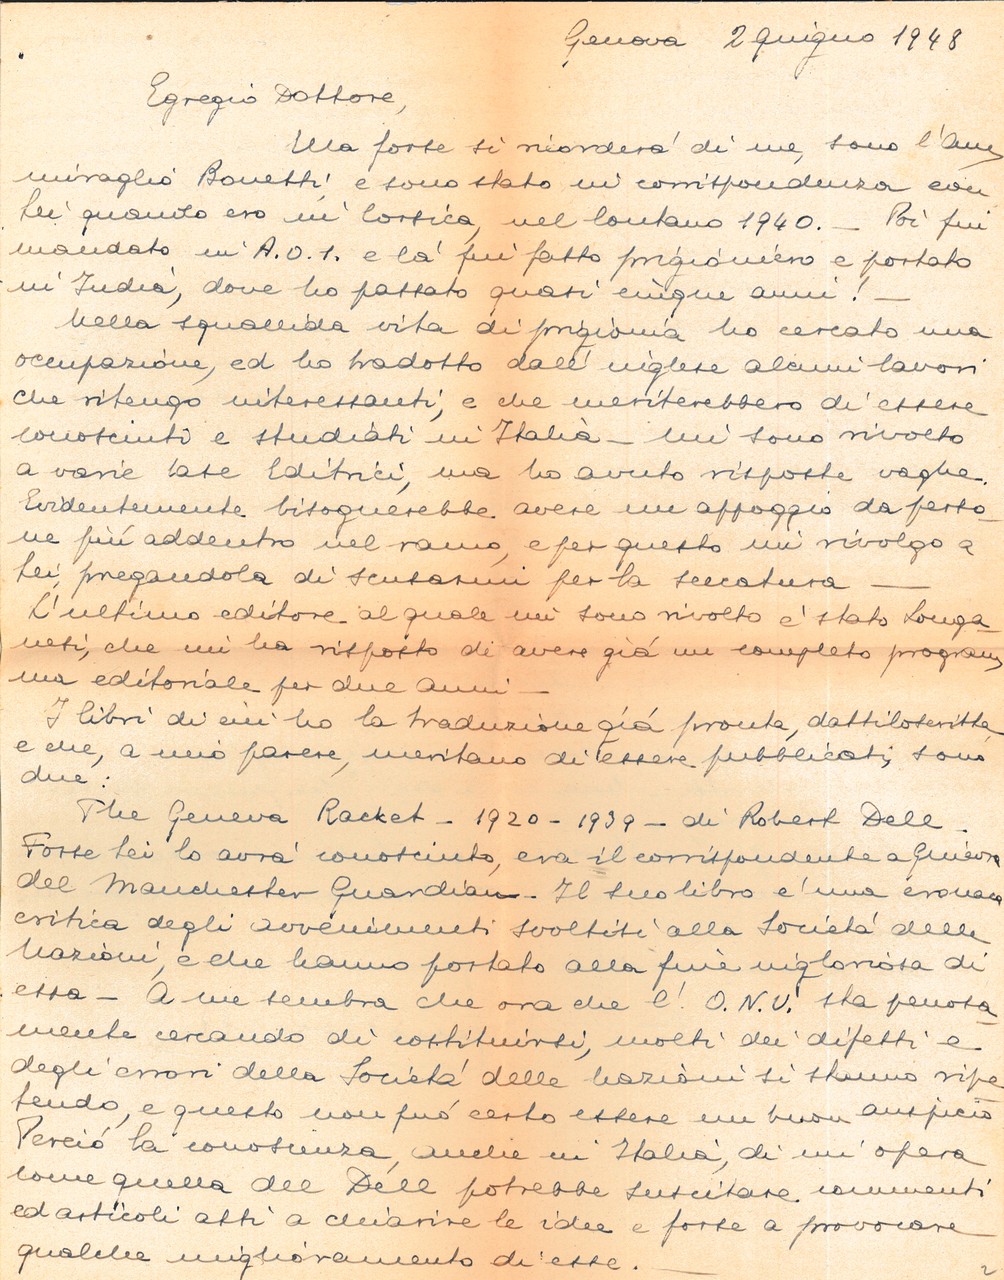 Genova 2 giugno 1948
Egregio Dottore,
Ella forse si ricorderà di me, sono l'Am
miraglio Bonetti, e sono stato in corrispondenza con
Lei quando ero in Corsica, nel lontano 1940. — Poi fui
mandato in A.O.I. e là fui fatto prigioniero e portato
in India, dove ho passato quasi cinque anni! —
Nella squallida vita di prigionia ho cercato una
occupazione, ed ho tradotto dall'inglese alcuni lavori
che ritengo interessanti, e che meriterebbero di essere
conosciuti e studiati in Italia — Mi sono rivolto
a varie Case Editrici, ma ho avuto risposte vaghe.
Evidentemente bisognerebbe avere un appoggio da perso_
ne più addentro nel ramo, e per questo mi rivolgo a
Lei, pregandola di scusarmi per la seccatura —
L'ultimo editore al quale mi sono rivolto è stato Longa_
nesi, che mi ha risposto di avere già un completo program
ma editoriale per due anni —
I libri di cui ho la traduzione già pronta, dattiloscritta
e che, a mio parere, meritano di essere pubblicati, sono
due:
The Geneva Racket — 1920 — 1939 — di Robert Dell —
Forse Lei lo avrà conosciuto, era il corrispondente a Ginevra
del Manchester Guardian — Il suo libro è una cronaca
critica degli avvenimenti svoltisi alla Società delle
Nazioni, e che hanno portato alla fine ingloriosa di
essa — A me sembra che ora che l'O.N.U. sta penosa_
mente cercando di costituirsi, molti dei difetti e
degli errori della Società delle Nazioni si stanno ripe_
tendo, e questo non può certo essere un buon auspicio
Perciò la conoscenza, anche in Italia, di un'opera
come quella del Dell potrebbe suscitare commenti
ed articoli atti a chiarire le idee e forse a provocare
qualche miglioramento di esse. —
2